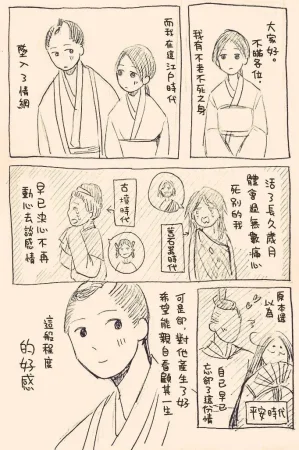 大家好。
不瞞各位，
我有不老不死之身
而我在這江户時代
墜入了情網
活了長久歲月
體會過無數痛心
死別的我
舊石器時代
古墳時代
早已決心不再
動心去談感情
原本還
以為
自己早已
忘卻了這份情
平安時代
可是卻，對他產生了好
希望能親自看顧其一生
這般程度
的好感